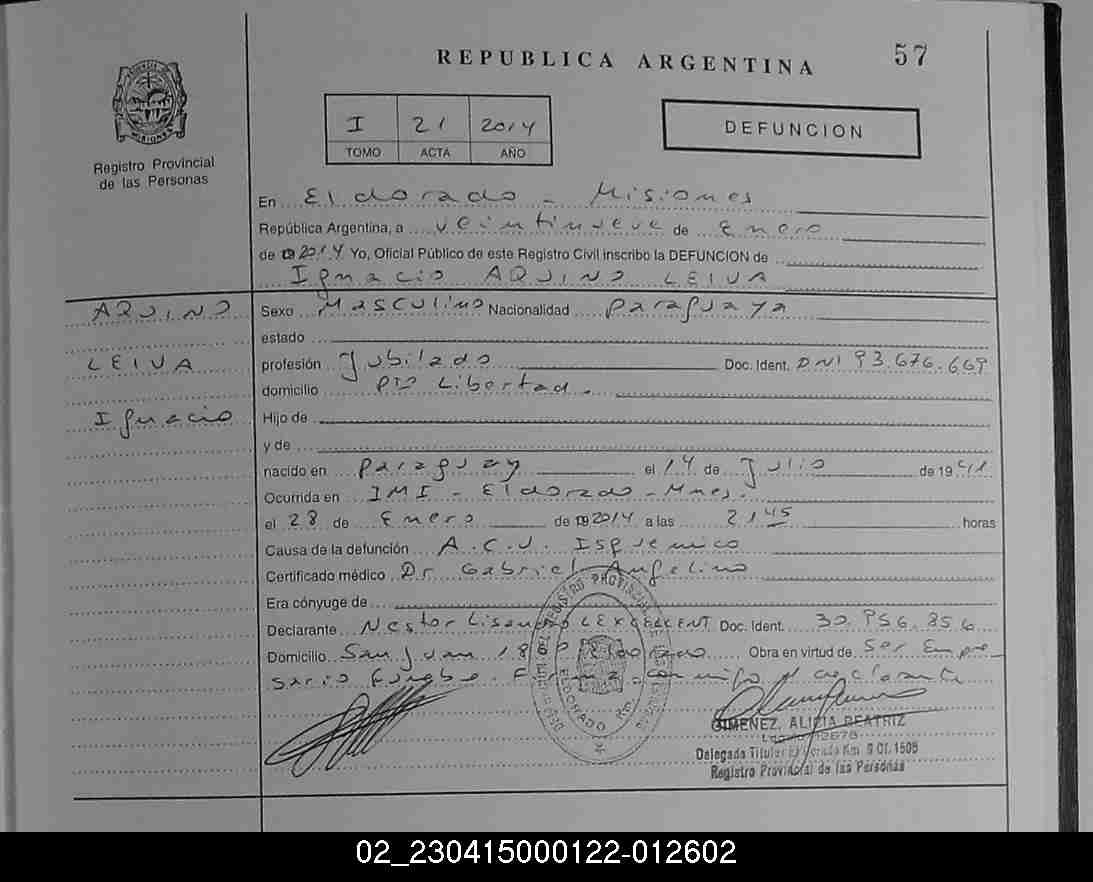 REPUBLICA ARGENTINA
57
I 21 2014
TOMO ACTA AÑO
DEFUNCION
Registro Provincial
de las Personas
En El dorado - Misiones
República Argentina, a veintinueve de Enero
de 2014 Yo, Oficial Público de este Registro Civil inscribo la DEFUNCION de
Ignacio AQUINO LEIVA
AQUINO
LEIVA
Ignacio
Sexo Masculino Nacionalidad paraguaya
estado
profesión Jubilado Doc. Ident. DNI 93.676.669
domicilio Pto Libertad.
Hijo de
y de
nacido en Paraguay el 14 de Julio de 1941
Ocurrida en IMI - Eldorado - Mnes.
el 28 de Enero de 2014 a las 21 45 horas
Causa de la defunción A.C.V. Isquemico
Certificado médico Dr Gabriel Angelino
Era cónyuge de
Declarante Nestor Doc. Ident. 30.956.856
Domicilio San Juan Eldorado Obra en virtud de Ser Empre-
sario Funebre. Firma conmigo el declarante
GIMENEZ, ALICIA BEATRIZ
Delegada Titular Eldorado Km. 9 Of. 1505
Registro Provincial de las Personas
02_230415000122-012602